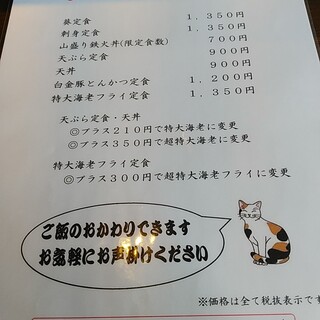 葵定食 1,350円
刺身定食 1,350円
山盛り鉄火丼(限定食数) 700円
天ぷら定食 900円
天丼 900円
白金豚とんかつ定食 1,200円
特大海老フライ定食 1,350円
天ぷら定食・天丼
◎プラス210円で特大海老に変更
◎プラス350円で超特大海老に変更
特大海老フライ定食
◎プラス300円で超特大海老フライに変更
ご飯のおかわりできます
お気軽にお声掛けください
※価格は全て税抜表示です